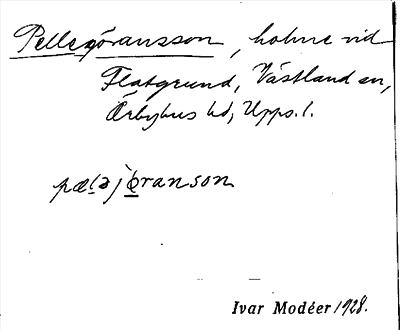 Pellegöransson, holme vid
Flatgrund, Västland sn,
Örbyhus hd, Upps. l.
pæl̠əj`ø̠ranson
Ivar Modéer 1928.